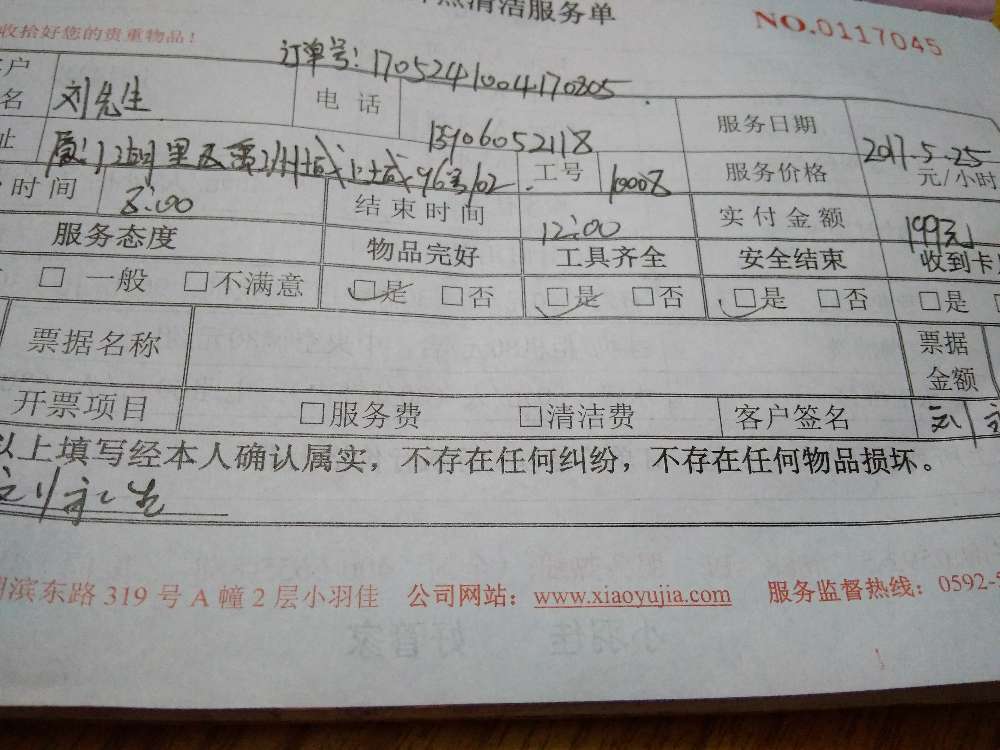 清洁服务单
NO.0117045
收拾好您的贵重物品!
订单号:1705241004170805
户名 刘先生 电话 13906052118 服务日期 2017.5.25
址 工号 服务价格 元/小时
时间 8:00 结束时间 12:00 实付金额 199元
服务态度 物品完好 工具齐全 安全结束 收到卡
□ 一般 □不满意 □是 □否 □是 □否 □是 □否 □是
票据名称 票据金额
开票项目 □服务费 □清洁费 客户签名
以上填写经本人确认属实,不存在任何纠纷,不存在任何物品损坏。
刘先生
滨东路 319 号 A 幢 2 层小羽佳 公司网站:www.xiaoyujia.com 服务监督热线:0592-